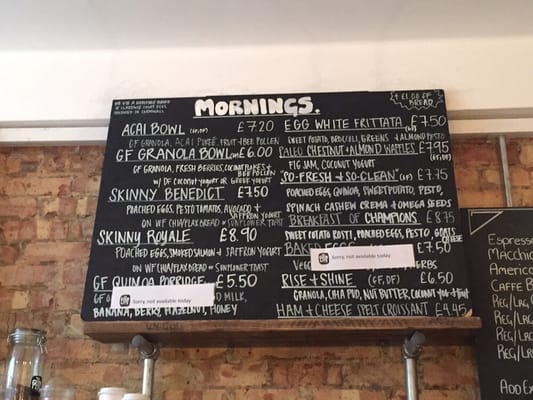 MORNINGS.
+ £1.00 GF BREAD
ACAI BOWL (GF, DF) £7.20
GF GRANOLA, ACAI PUREE, FRUIT + BEE POLLEN
GF GRANOLA BOWL £6.00
GF GRANOLA, FRESH BERRIES, COCONUT FLAKES + BEE POLLEN
W/ DF COCONUT YOGURT OR GREEK YOGURT
SKINNY BENEDICT £7.50
POACHED EGGS, PESTO TOMATOS, AVOCADO + SAFFRON YOGURT
ON WF CHIA/FLAX BREAD OR SUNFLOWER TOAST
SKINNY ROYALE £8.90
POACHED EGGS, SMOKED SALMON + SAFFRON YOGURT
ON WF CHIA/FLAX BREAD OR SUNFLOWER TOAST
GF QUINOA PORRIDGE £5.50
GF
Sorry, not available today
MILK,
BANANA, BERRY, HAZELNUT, HONEY
EGG WHITE FRITTATA £7.50
SWEET POTATO, BROCCOLI, GREENS + ALMOND PESTO
PALEO CHESTNUT + ALMOND WAFFLES £7.95
FIG JAM, COCONUT YOGURT
SO-FRESH + SO-CLEAN £7.75
POACHED EGGS, QUINOA, SWEET POTATO, PESTO,
SPINACH CASHEW CREMA + OMEGA SEEDS
BREAKFAST OF CHAMPIONS £8.75
SWEET POTATO ROSTI, POACHED EGGS, PESTO, GOATS CHEESE
BAKED EGGS £7.50
Sorry, not available today
HERBS
RISE + SHINE (GF, DF) £6.50
GRANOLA, CHIA PUD, NUT BUTTER, COCONUT YOG + FRUIT
HAM + CHEESE SPELT CROISSANT £4.45
Espresso
Macchia
America
Caffe
Reg/Lrg
Reg/Lrg
Reg/Lrg
Reg/Lrg
Add E